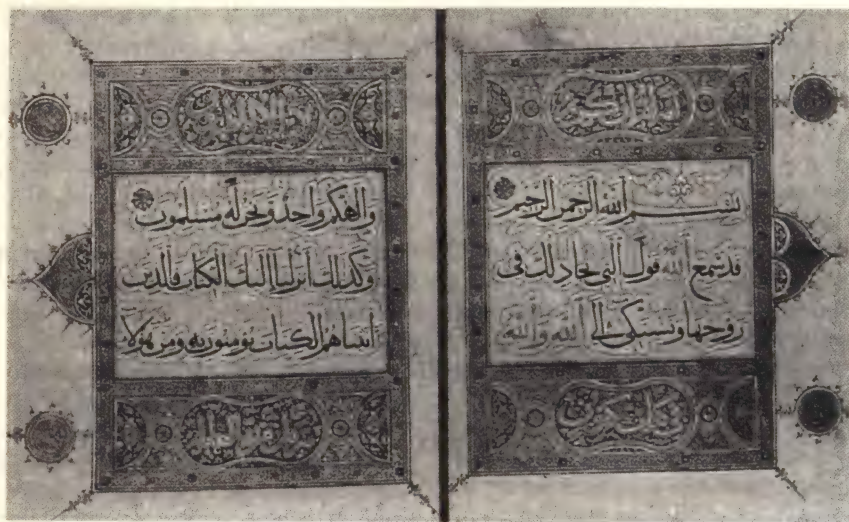 انه لقرآن كريم
بسم الله الرحمن الرحيم
قد سمع الله قول التي تجادلك في
زوجها وتشتكي الى الله والله
في كتاب مكنون
والهكم واحد ونحن له مسلمون
وكذلك أنزلنا اليك الكتاب فالذين
آتيناهم الكتاب يؤمنون به ومن هؤلاء